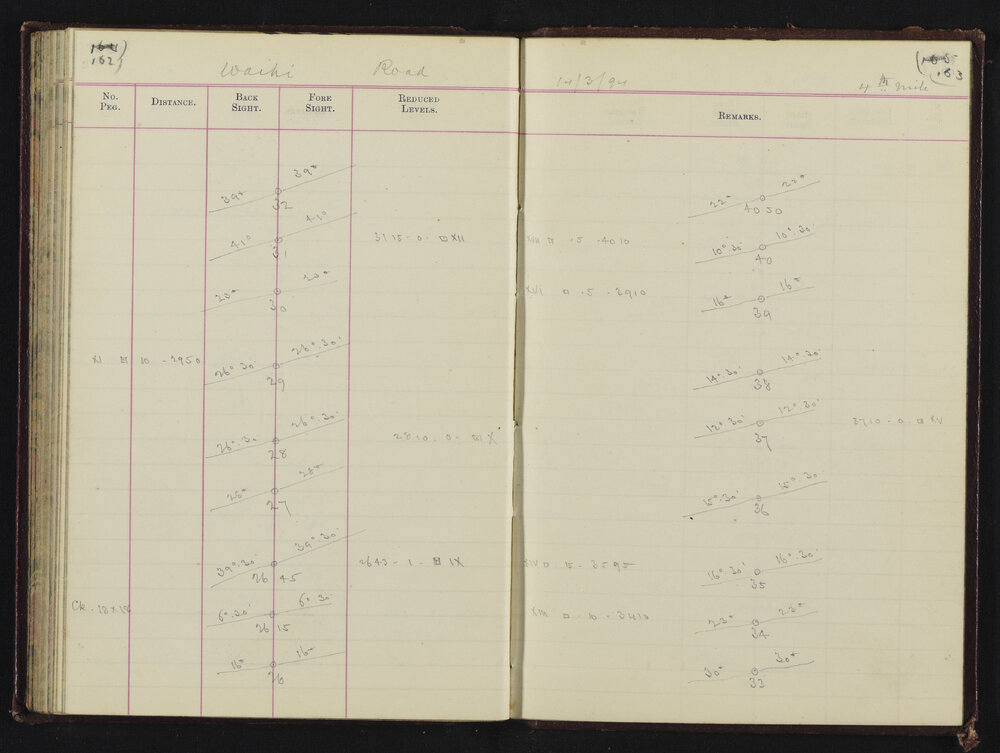 162)
Waihi Road
No. Peg.
Distance.
Back Sight.
Fore Sight.
Reduced Levels.
39° 39°
32
41° 41°
31
3115 - 0 - XII
30
26°.30' 26°.30'
29
XI 10 - 2950
26°.30' 26°.30'
28
2810 - 0 - X
27
39°.30' 39°.30'
26 45
2643 - 1 - IX
6°.30' 6°.30
26 15
Ck. 12 x 12
16° 16°
26
163
14/3/94
4th mile
Remarks.
22° 22°
40 50
10°.30' 10°.30'
40
.5 .4010
16° 16°
39
XVI .5 - 3910
14°.30' 14°.30'
38
12°.30' 12°.30'
37
3710 - 0 - XV
15°.30' 15°.30
36
16°.30' 16°.30'
35
XIV 15 - 3595
23° 23°
34
XIII 10 - 3410
30° 30°
33